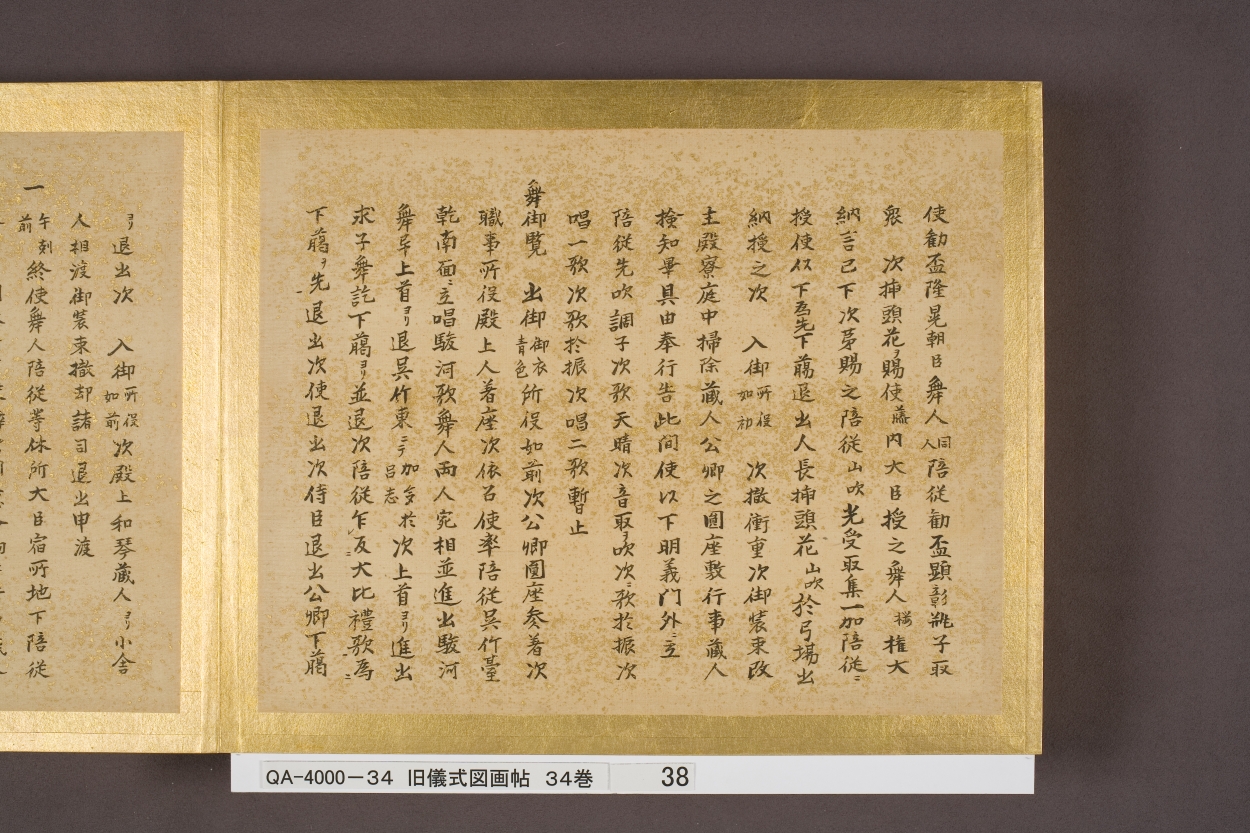 使勧盃隆晃朝臣舞人同人陪従勧盃顕彰銚子取
衆　次挿頭花ヲ賜使藤内大臣授之舞人桜権大
納言已下次第賜之陪従山吹光受取集一加陪従ニ
授使以下為先下﨟退出人長挿頭花山吹於弓場出
納授之次　入御所役如初　次撤衝重次御装束改
主殿寮庭中掃除蔵人公卿之圓座敷行事蔵人
検知畢具由奉行告此間使以下明義門外ニ立
陪従先吹調子次歌天晴次音取ヲ吹次ニ歌於振次
唱一歌次歌於振次唱二歌暫止
舞御覧　出御御衣青色所役如前次公卿圓座参着次
職事所役殿上人着座次依召使率陪従呉竹臺
乾南面ニ立唱駿河歌舞人両人宛相並進出駿河
舞畢上首ヨリ退呉竹東ニテ加多於呂志次上首ヨリ進出
求子舞訖下﨟ヨリ並退次陪従乍反大比禮歌為
下﨟ヲ先退出次使退出次侍臣退出公卿下﨟
ヨリ退出次　入御所役如前次殿上和琴蔵人ヨリ小舎
人相渡御装束撤却諸司退出申渡
一
午刻前終使舞人陪従等休所大臣宿所地下陪従
QA-4000-34 旧儀式図画帖 34巻
38